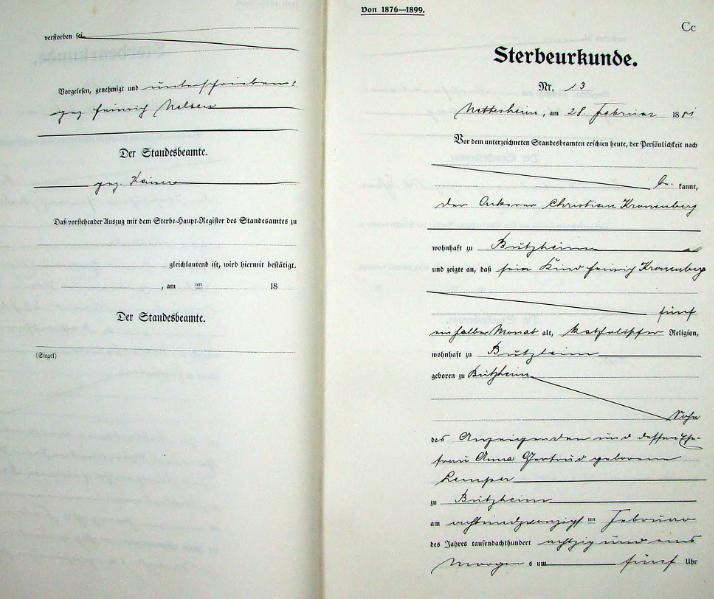 verstorben sei.
Vorgelesen, genehmigt und unterschrieben!
gez. Heinrich
Der Standesbeamte.
gez. Kaiser
Daß vorstehender Auszug mit dem Sterbe-Haupt-Register des Standesamtes zu
gleichlautend ist, wird hiermit bestätigt.
, am ten 18
Der Standesbeamte.
(Siegel)
Von 1876—1899.
Cc
Sterbeurkunde.
Nr. 13
Nettesheim, am 28 Februar 1881
Vor dem unterzeichneten Standesbeamten erschien heute, der Persönlichkeit nach
be kannt,
der Ackerer Christian Kronenberg
wohnhaft zu Bützheim
und zeigte an, daß sein Kind Heinrich Kronenberg
fünf
ein halber Monat alt, katholischer Religion,
wohnhaft zu Bützheim
geboren zu Bützheim
Sohn
des Anzeigenden und dessen Ehe-
frau Anna Gertrud geborene
Lemper
zu Bützheim
am achtundzwanzigst ten Februar
des Jahres tausendachthundert achtzig und eins
Morgens um fünf Uhr